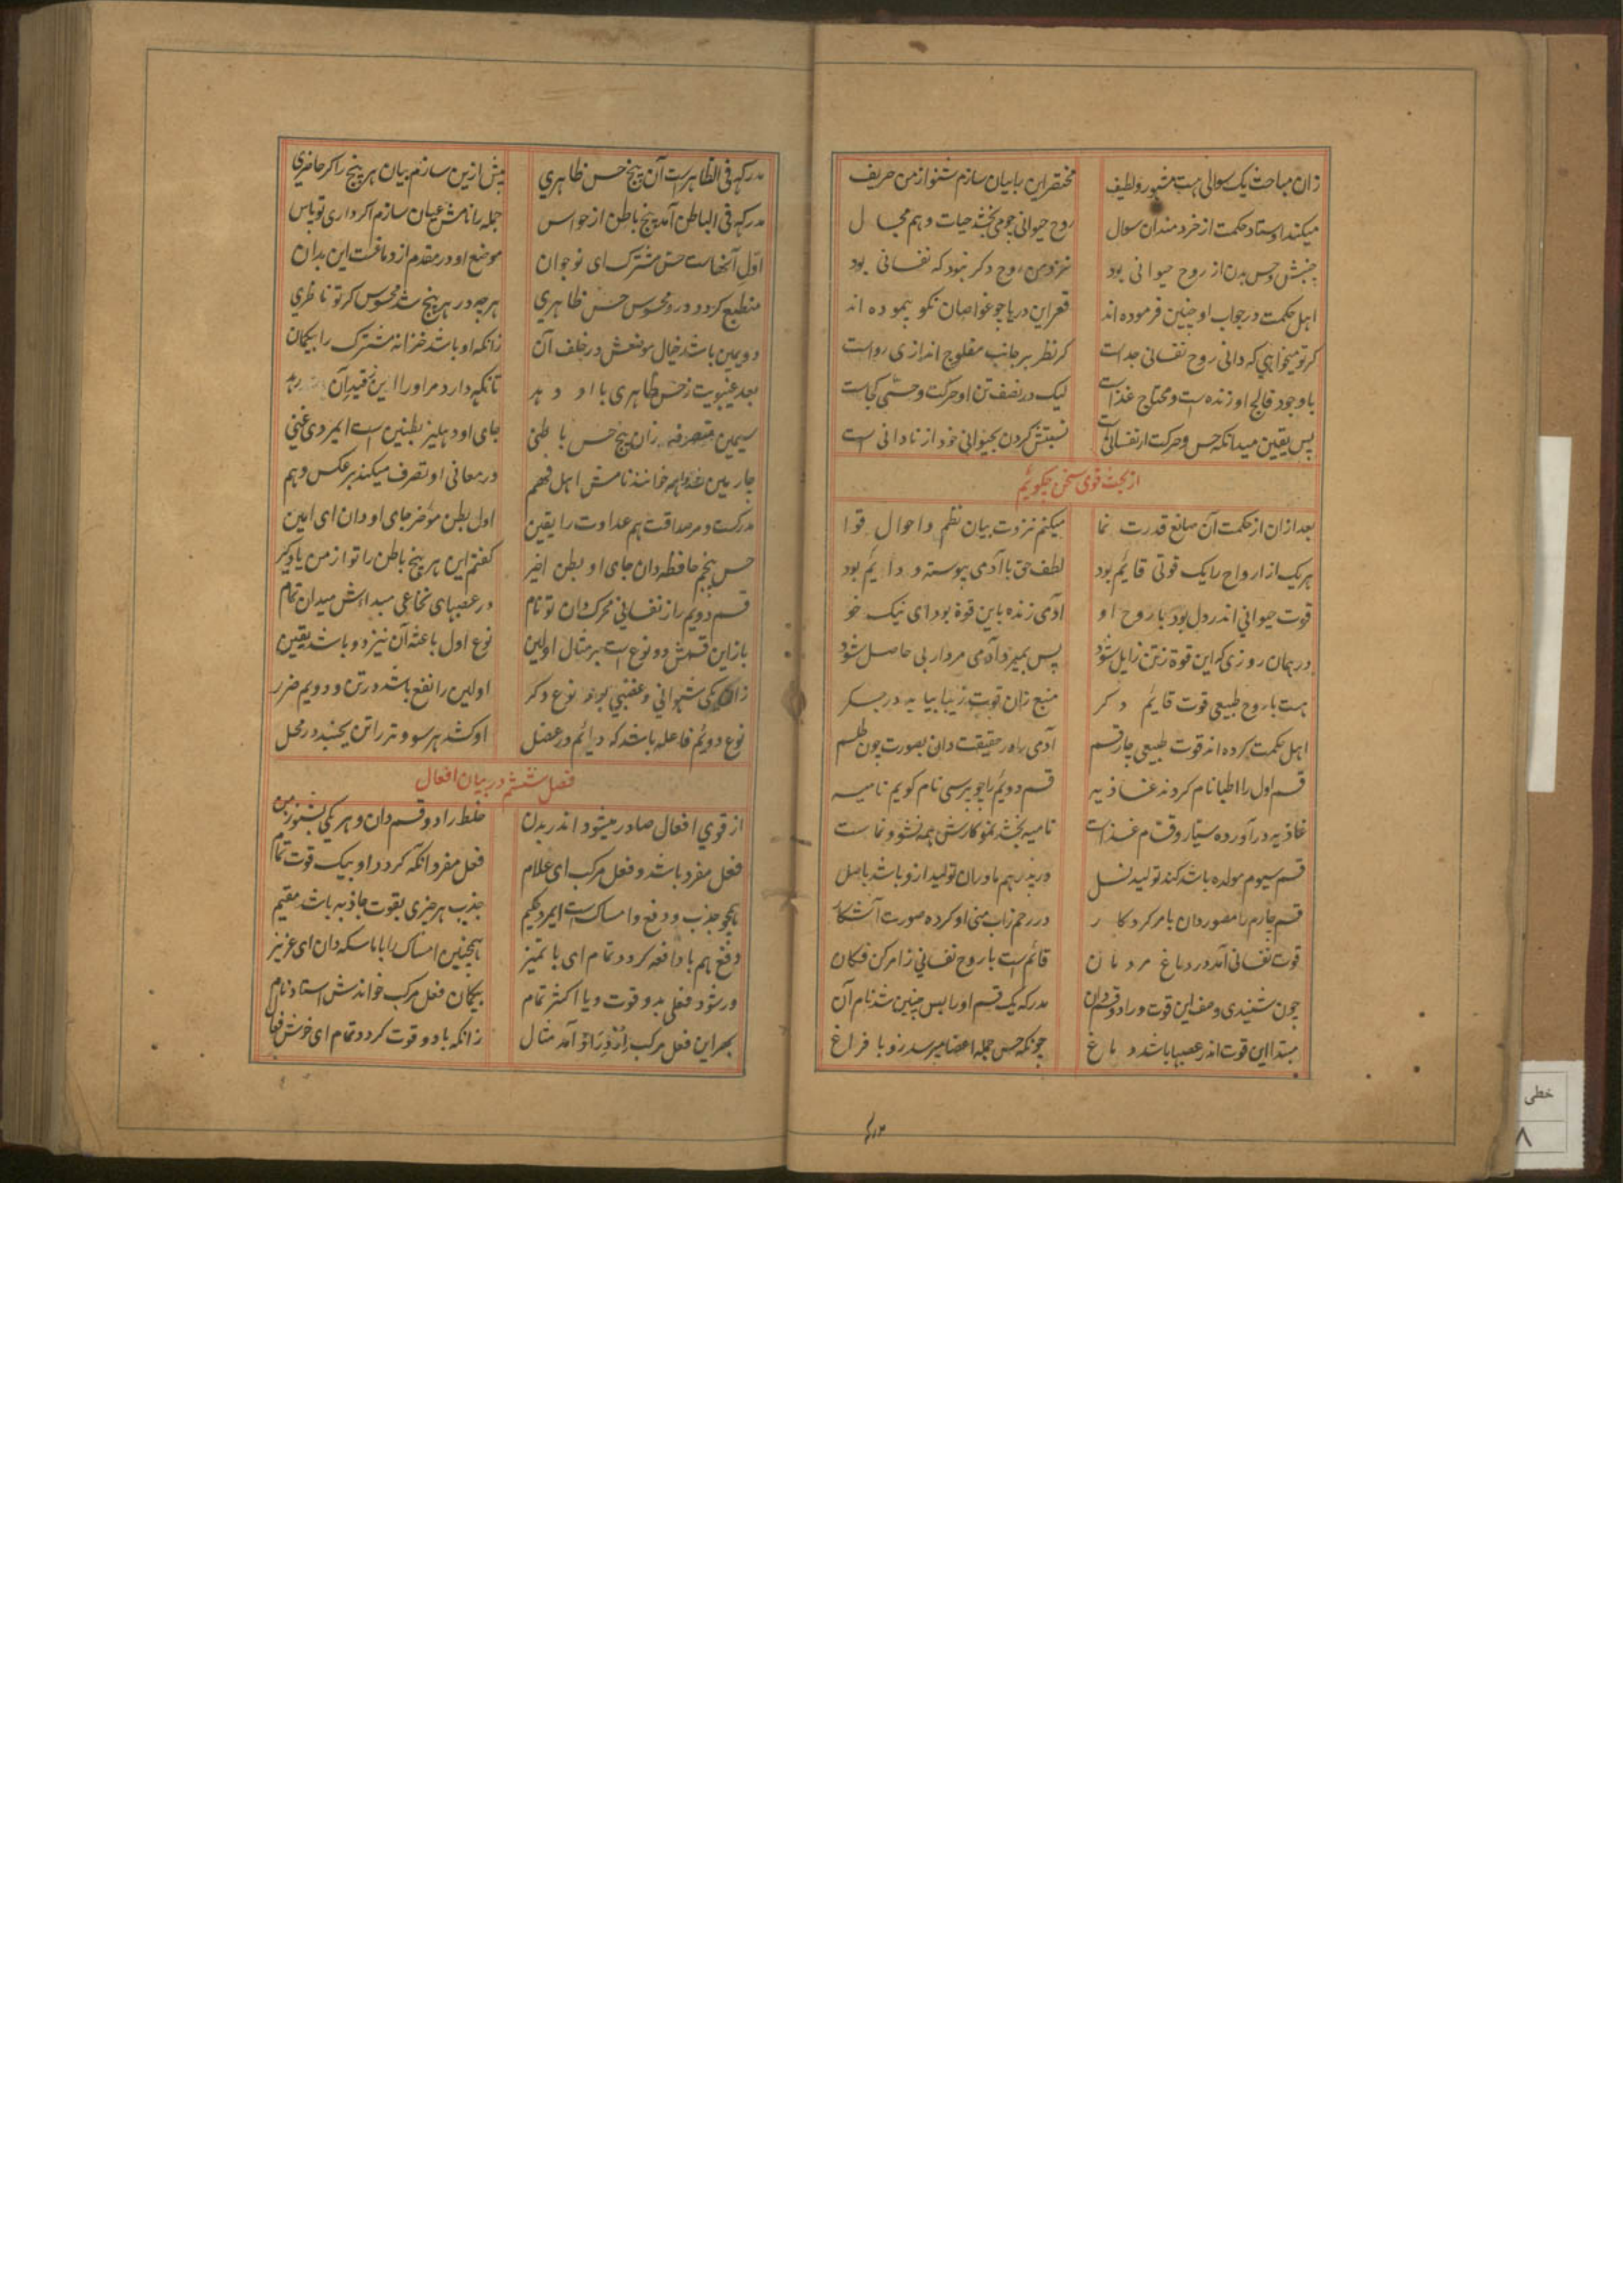 زان مباحث یک سوالی هست مشهور و لطیف مختصر این را بیان سازم شنو از من حریف
میکند اوستاد حکمت از خردمندان سوال روح حیوانی چو می بخشد حیات و هم مجال
جنبش و حس بدن از روح حیوانی بود نزد من روح دکر نبود که نفسانی بود
اهل حکمت در جواب او چنین فرموده اند قعر این دریا چو غواصان نکو پیموده اند
کر تو میخواهی که دانی روح نفسانی جداست کر نظر بر جانب مفلوج اندازی رواست
با وجود فالج او زنده است و محتاج غذاست لیک در نصف تن او حرکت و حسی کجاست
پس یقین میدانکه حس و حرکت از نفسانی است نسبتش کردن بحیوانی خود از نادانی است
از بحث قوی سخن میکوئیم
بعد ازان از حکمت آن صانع قدرت نما میکنم نزدت بیان نظم و احوال قوا
هر یک از ارواح را یک قوتی قائم بود لطف حق با آدمی پیوسته و دایم بود
قوت حیوانی اندر دل بود با روح او آدمی زنده باین قوة بود ای نیک خو
در همان روزی که این قوة ز تن زایل شود پس بمیرد آدمی مرداریی حاصل شود
هست با روح طبیعی قوت قایم دکر منبع زان قوت زیبا بیابیه در جگر
اهل حکمت کرده اند قوت طبیعی چار قسم آدمی را در حقیقت دان بصورت چون طلسم
قسم اول را اطبا نام کردند غاذیه قسم دویم را چو پرسی نام کویم نامیه
غاذیه در آورده بسیار و قسام غذاست نامیه بخشد نمو کارش همه نشو و نماست
قسم سیوم مولده باشد کند تولید نسل در پدر هم مادران تولید ازو باشد باصل
قسم چارم را مصور دان بامر کردکار در رحم زاب منی او کرده صورت آشکار
قوت نفسانی آمد در دماغ مردمان قائم است با روح نفسانی ز امر کن فکان
چون شنیدی وصف این قوت ورا دو قسم دان مدرکه یک قسم او را پس چنین شد نام آن
مبتدا این قوت اندر عصبها باشد دماغ چونکه حس جمله اعضا میرسد زو با فراغ
مدرکه فی الظاهر است آن پنج حس ظاهری پیش ازین سازم بیان هر پنج را کر حاضری
مدرکه فی الباطن آمد پنج باطن از حواس جمله را نامش عیان سازم اکر داری تو پاس
اول آنهاست حس مشترک ای نوجوان موضع او در مقدم از دماغست این بدان
منطبع کردد درو محسوس حس ظاهری هر چه در هر پنج شد محسوس کر تو ناظری
دویمین باشد خیال موضعش در خلف آن زانکه او باشد خزانه مشترک را بیکمان
بعد غیبوبت ز حس ظاهری با او دهد تا نکه دارد مر او را این نقید آن
سیمین متصرفه زان پنج حس باطنی جای او دهلیز بطنین است ایمرد غنی
چارمین خوانند نامش اهل فهم در معانی او تصرف میکند بر عکس وهم
مدرکست و مر صداقت هم عداوت را یقین اول بطن مؤخر جای او دان ای امین
حس پنجم حافظه دان جای او بطن اخیر کفتم این هر پنج باطن را تو از من یاد کیر
قسم دویم را ز نفسانی محرک دان تو نام در عصبهای نخاعی مبدا‌ش میدان تمام
باز این قسمش دو نوع است بر مثال اولین نوع اول باعثه آن نیز دو باشد یقین
زان یکی شهوانی و غضبی بود نوع دکر اولین را نفع باشد در تن و دویم ضرر
نوع دوئم فاعله باشد که دایم در عضل او کشد هر سو و تر را تن بجنبد در محل
فصل ششم در بیان افعال
از قوی افعال صادر میشود اندر بدن خلط را دو قسم دان و هر یکی بشنو ز من
فعل مفرد باشد و فعل مرکب ای غلام فعل مفرد انکه کردد او بیک قوت تمام
همچو جذب و دفع و امساک است ایمرد حکیم جذب هر چیزی بقوت جاذبه باشد مقیم
دفع هم با دافعه کردد تمام ای با تمیز همچنین امساک را با ماسکه دان ای عزیز
ور شود فعلی بدو قوت و یا اکثر تمام بیکمان فعل مرکب خواندش استاد نام
بهر این فعل مرکب ازدراد آمد مثال زانکه با دو قوت کردد تمام ای خوش فعال
خطی
۸